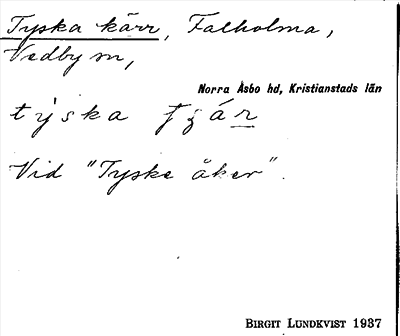 Tyska kärr, Falholma,
Vedby sn,
Norra Åsbo hd, Kristianstads län
Vid "Tyske åker".
BIRGIT LUNDKVIST 1937